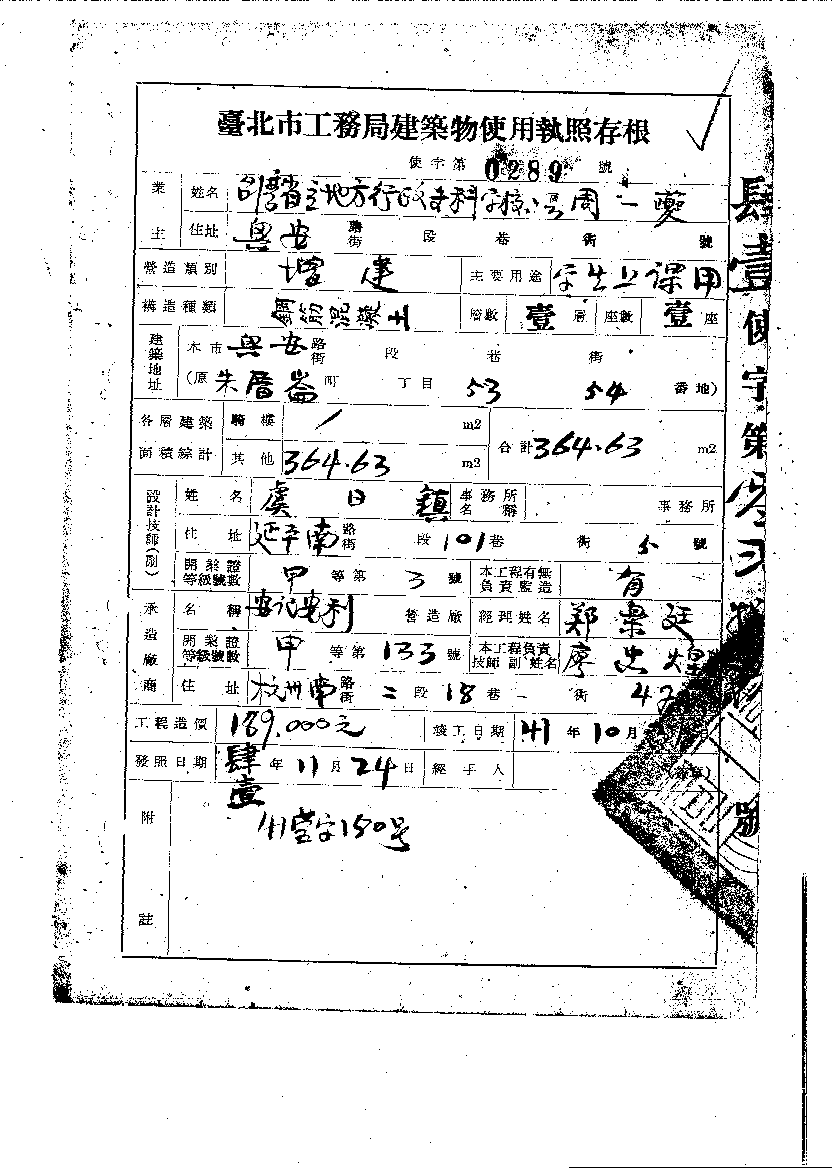 臺北市工務局建築物使用執照存根
使字第 0289 號
業主 姓名 台灣省立地方行政專科學校 周一夔
住址 興安 路街 段 巷 街 號
營造類別 增建 主要用途 學生上課用
構造種類 鋼筋混凝土 層數 壹 層 座數 壹 座
建築地址 本市 興安 路街 段 巷 街
(原 朱厝崙 町 丁目 53 54 番地)
各層建築面積綜計 騎樓 / m2 合計 364.63 m2
其他 364.63 m2
設計技師(副) 姓名 虞日鎮 事務所名稱 事務所
住址 延平南 路街 段 101 巷 街 5 號
開業證等級號數 甲 等第 3 號 本工程有無負責監造 有
承造廠商 名稱 安記安利 營造廠 經理姓名 鄭棠廷
開業證等級號數 甲 等第 133 號 本工程負責技師副姓名 廖忠煌
住址 杭州南 路街 二 段 18 巷 一 街 42
工程造價 189,000元 竣工日期 41 年 10 月
發照日期 肆壹 年 11 月 24 日 經手人
附註
41營字150号
肆壹使字第
號